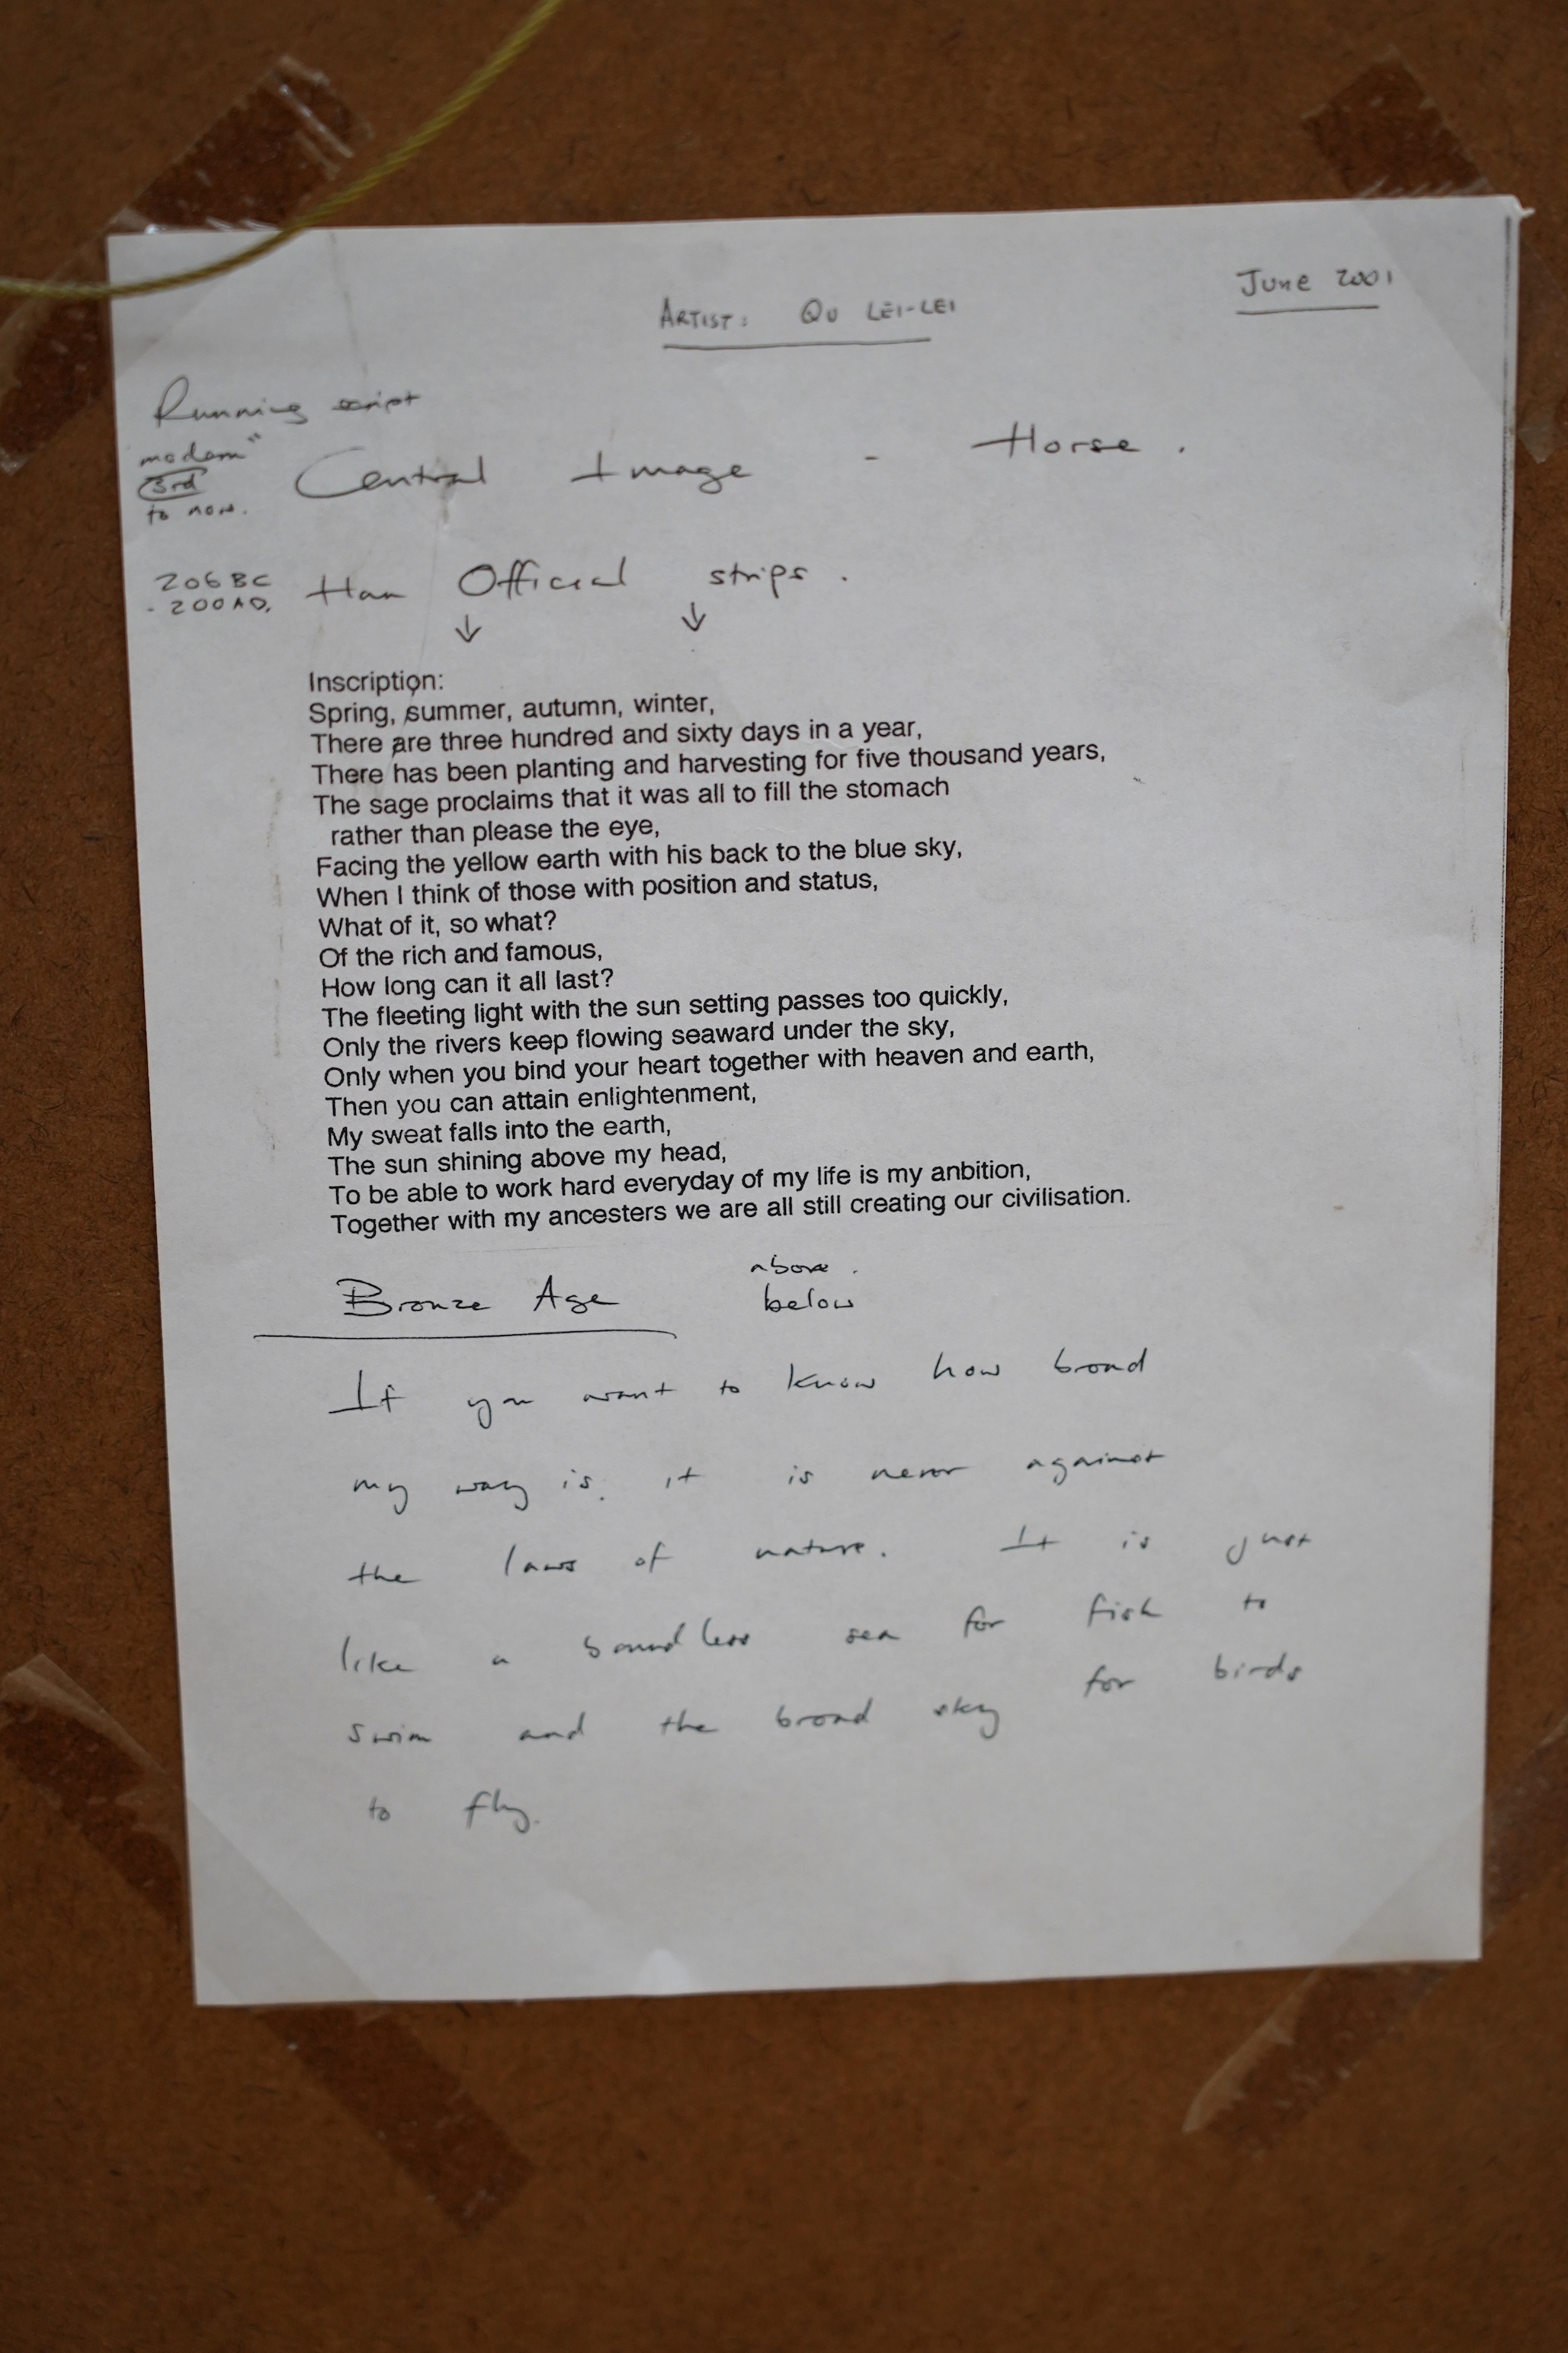 ARTIST: QU LEI-LEI
June 2001
Running script
modern"
3rd
to now.
Central Image - Horse.
206 BC
- 200 AD.
Han Official strips.
↓ ↓
Inscription:
Spring, summer, autumn, winter,
There are three hundred and sixty days in a year,
There has been planting and harvesting for five thousand years,
The sage proclaims that it was all to fill the stomach
rather than please the eye,
Facing the yellow earth with his back to the blue sky,
When I think of those with position and status,
What of it, so what?
Of the rich and famous,
How long can it all last?
The fleeting light with the sun setting passes too quickly,
Only the rivers keep flowing seaward under the sky,
Only when you bind your heart together with heaven and earth,
Then you can attain enlightenment,
My sweat falls into the earth,
The sun shining above my head,
To be able to work hard everyday of my life is my anbition,
Together with my ancesters we are all still creating our civilisation.
above.
Bronze Age below
If you want to know how broad
my way is. it is never against
the laws of nature. It is just
like a boundless sea for fish to
swim and the broad sky for birds
to fly.